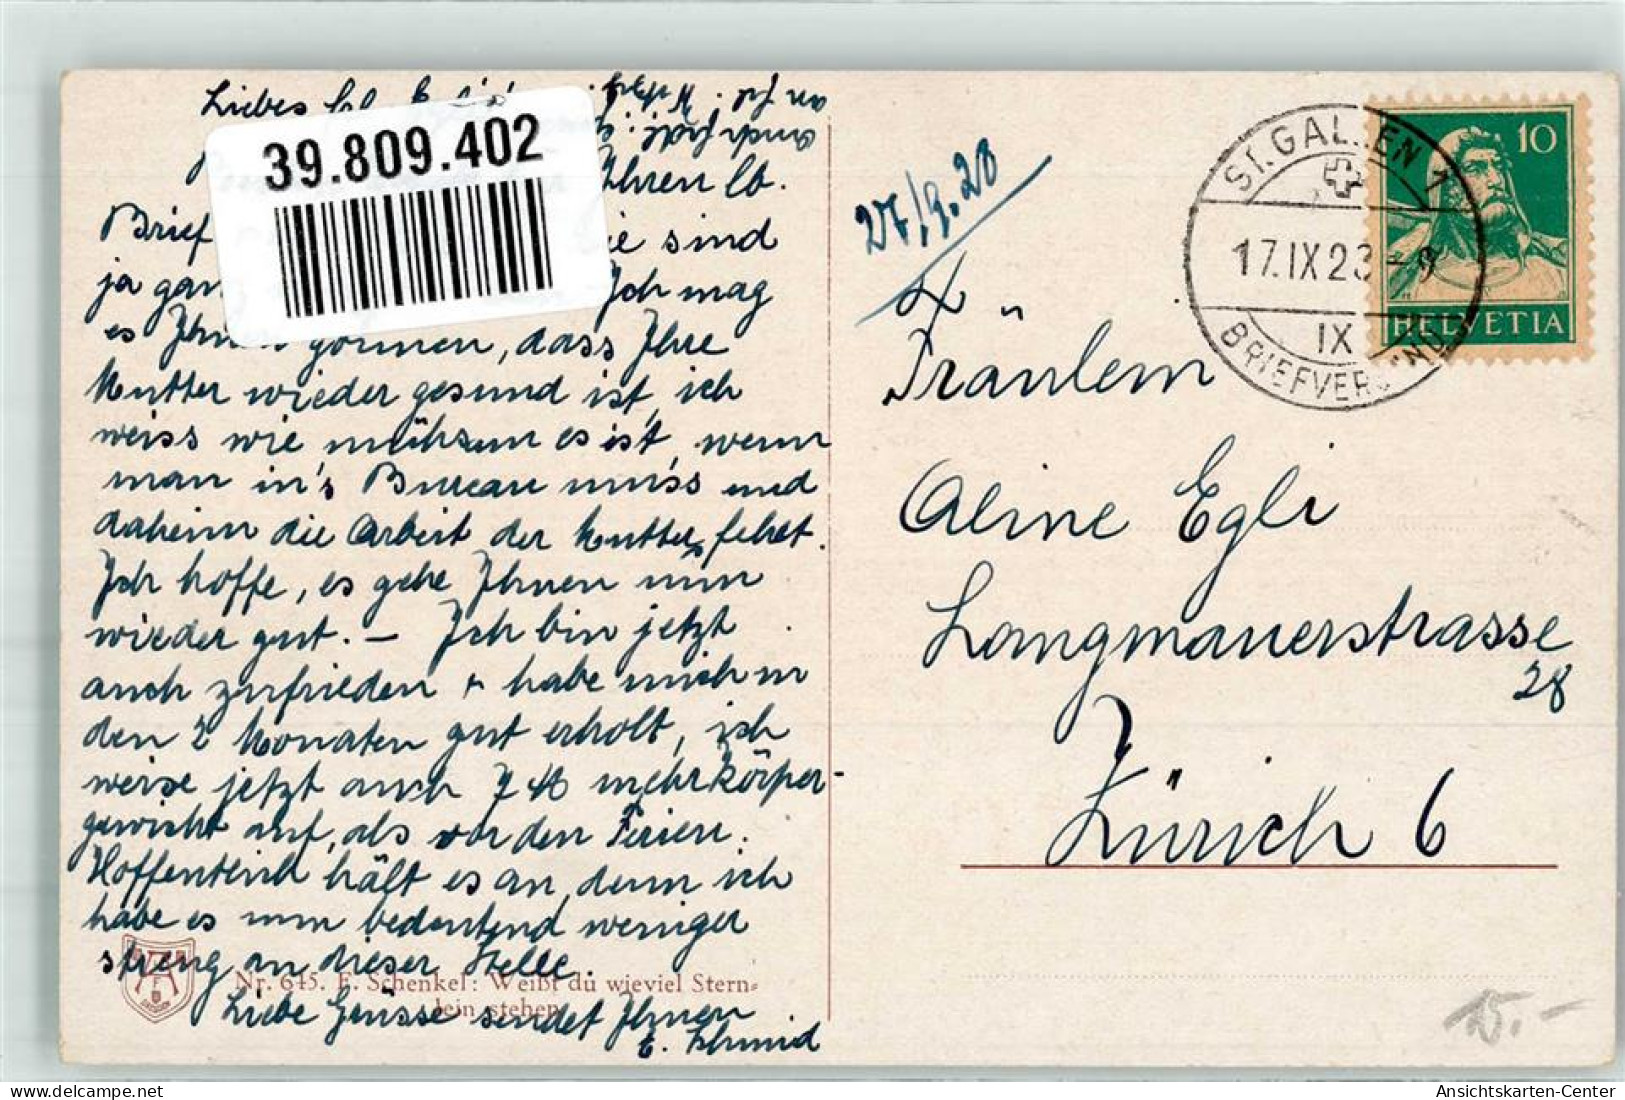 Liebes Frl. Egli!
39.809.402
Ihren lb.
Brief sie sind
ja ganz Ich mag
es Ihnen gönnen, dass Ihre
Mutter wieder gesund ist, ich
weiss wie mühsam es ist, wenn
man in's Bureau muss und
daheim die Arbeit der Mutter fehlt.
Ich hoffe, es gehe Ihnen nun
wieder gut. – Ich bin jetzt
auch zufrieden + habe mich in
den 2 Monaten gut erholt, ich
weise jetzt auch 7 ℔ mehr Körper-
gewicht auf, als vor den Ferien.
Hoffentlich hält es an, denn ich
habe es nun bedeutend weniger
streng an dieser Stelle.
Liebe Grüsse sendet Ihnen
E. Schmid
Nr. 645. F. Schenkel: Weißt du wieviel Stern-
lein stehen
27/9.28
ST. GALLEN 1
17.IX.23 - 9
IX
BRIEFVERSAND
10
HELVETIA
Fräulein
Aline Egli
Langmauerstrasse
28
Zürich 6
15.-
Ansichtskarten-Center